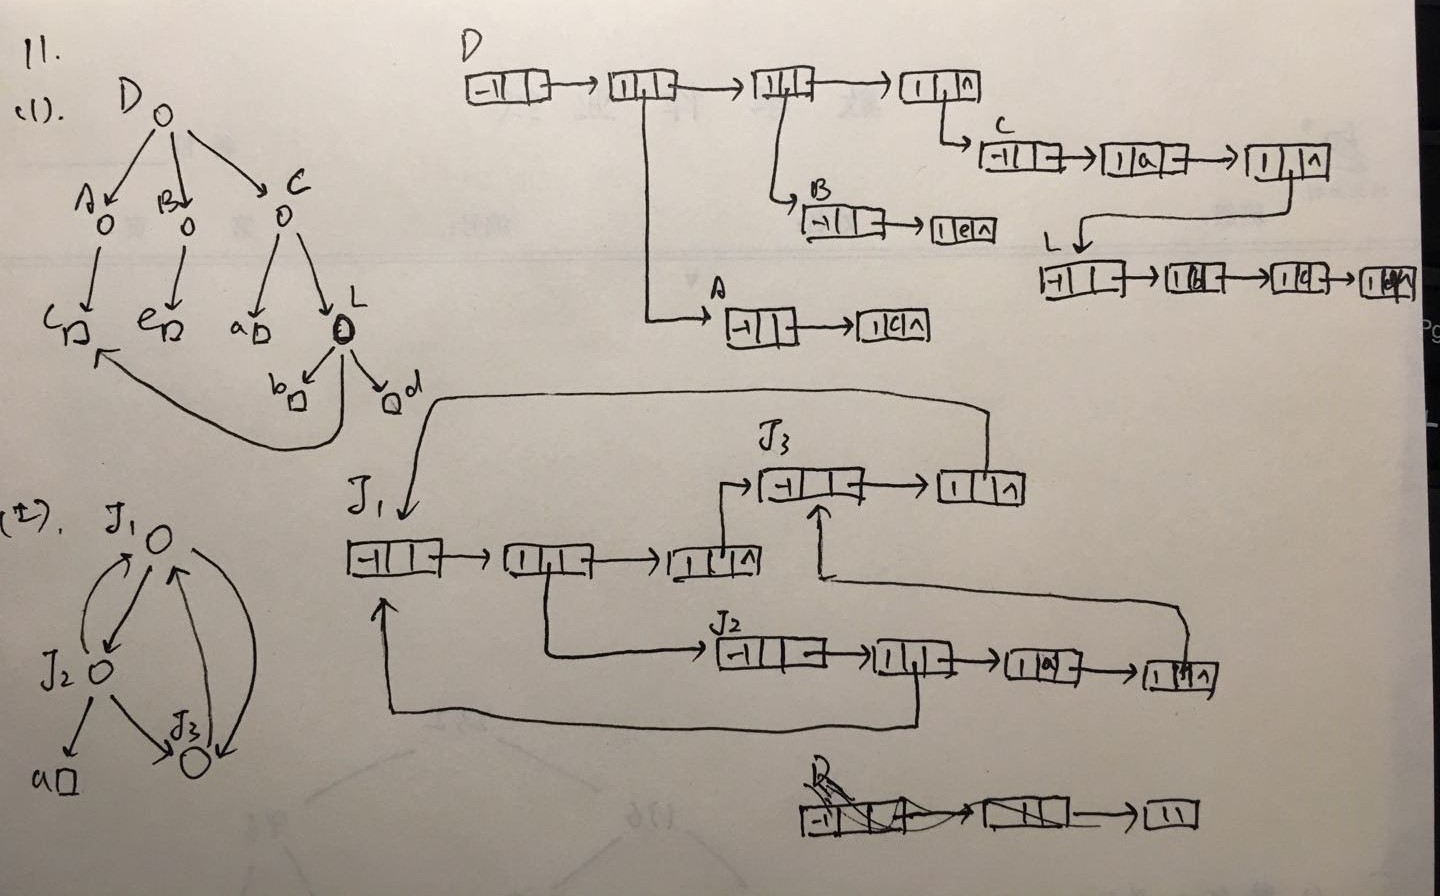 11.
(1).
D
A B C
c e a L
b d
D
-1 1 1 1 ∧
C
-1 1 a 1 ∧
B
-1 1 e ∧
L
-1 1 b 1 c 1 d ∧
A
-1 1 c ∧
(2).
J1
J2
J3
a
J3
-1 1 ∧
J1
-1 1 1 ∧
J2
-1 1 1 a 1 ∧